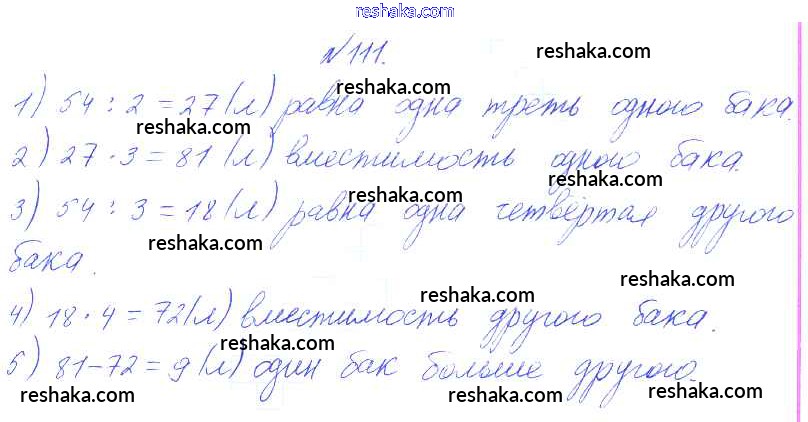 reshaka.com
№111. reshaka.com
reshaka.com reshaka.com
1) 54 : 2 = 27 (л) равна одна треть одного бака.
reshaka.com reshaka.com
2) 27 · 3 = 81 (л) вместимость одного бака.
reshaka.com
3) 54 : 3 = 18 (л) равна одна четвёртая другого
reshaka.com reshaka.com
бака.
reshaka.com reshaka.com
4) 18 · 4 = 72 (л) вместимость другого бака.
reshaka.com reshaka.com
5) 81 - 72 = 9 (л) один бак больше другого.
reshaka.com reshaka.com reshaka.com